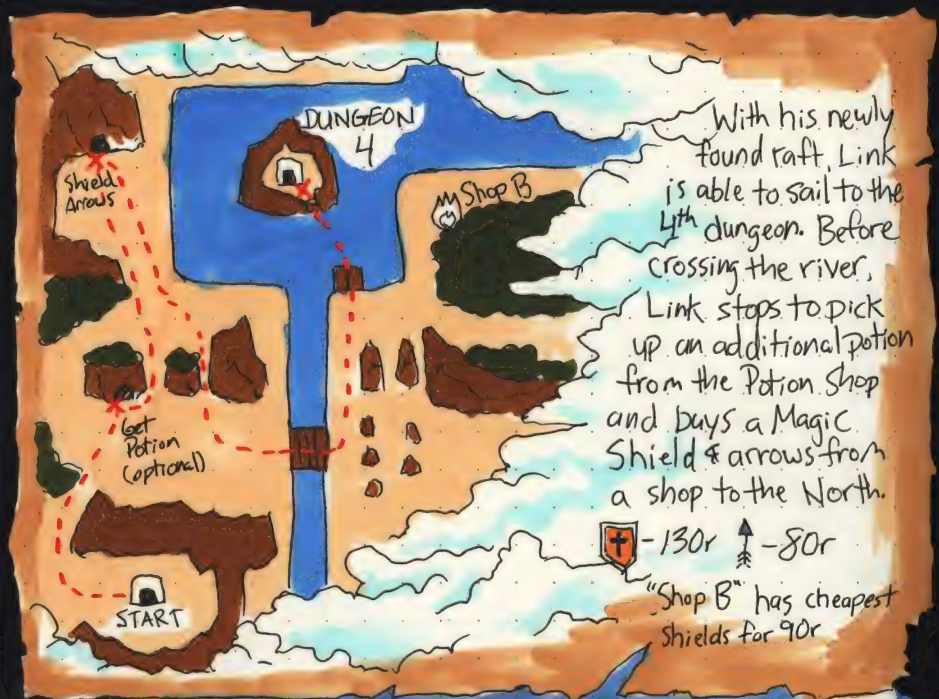 DUNGEON
4
Shield
Arrows
Shop B
Get
Potion
(optional)
START
With his newly
found raft, Link
is able to sail to the
4th dungeon. Before
crossing the river,
Link stops to pick
up an additional potion
from the Potion Shop
and buys a Magic
Shield & arrows from
a shop to the North.
-130r -80r
"Shop B" has cheapest
Shields for 90r